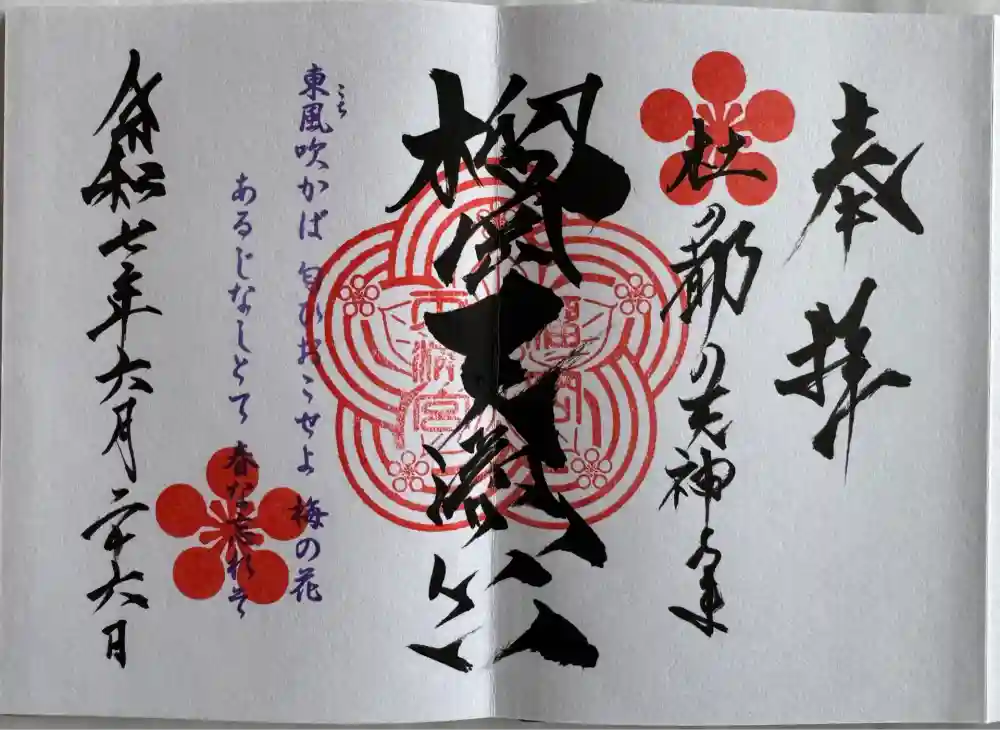 奉拝
杜の都の天神さま
榴岡天満宮
榴岡
天満宮
こち
東風吹かば 匂ひおこせよ 梅の花
あるじなしとて 春な忘れそ
令和七年六月二十六日